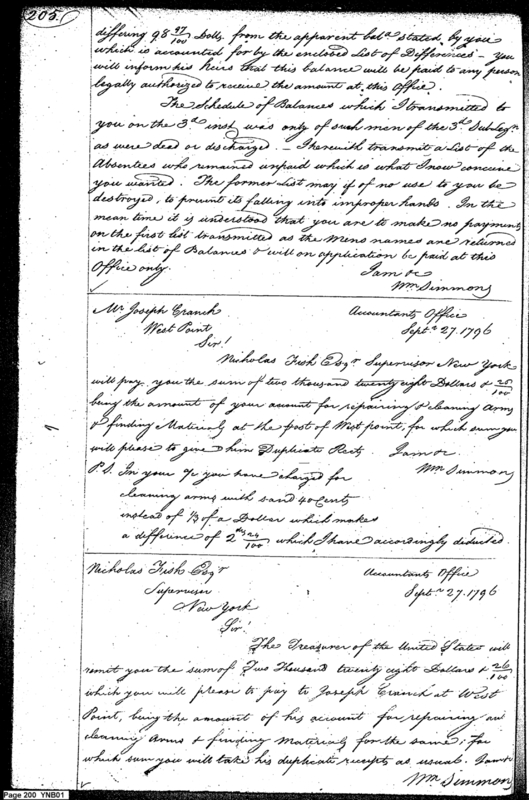 205.
differing 98 97/100 Dolls. from the apparent bala. stated by you
which is accounted for by the enclosed List of Differences - You
will inform his heirs that this balance will be paid to any person
legally authorized to receive the amount at this Office.
The Schedule of Balances which I transmitted to
you on the 3d inst. was only of such men of the 3d Sub Legn.
as were dead or discharged. - I herewith transmit a List of the
Absentees who remained unpaid which is what I now conceive
you wanted. The former List may if of no use to you be
destroyed, to prevent its falling into improper hands. In the
mean time it is understood that you are to make no payments
on the first list transmitted as the Mens names are returned
in the list of Balances & will on application be paid at this
Office only.
I am &c
Wm Simmons
Mr. Joseph Cranch
Accountants Office
West Point
Septr. 27. 1796
Sir!
Nicholas Fish Esqr. Supervisor New York
will pay you the sum of two thousand twenty eight Dollars &
being the amount of your account for repairing & cleaning Arms
& finding Materials at the post of West point, for which sum you
will please to give him Duplicate Rects
I am &c
Wm Simmons
P.S. In your a/c you have charged for
cleaning arms with sand 40 Cents
instead of 1/3 of a Dollar which makes
a difference of 2 24/100 which I have accordingly deducted.
Nicholas Fish Esqr.
Accountants Office
Supervisor
Septr. 27. 1796
New York
Sir!
The Treasurer of the United States will
remit you the sum of Two Thousand twenty eight Dollars & 26/100
which you will please to pay to Joseph Cranch at West
Point, being the amount of his account for repairing and
cleaning Arms & finding Materials for the same, for
which sum you will take his duplicate receipts as usual. I am &c
Wm Simmons
Page 200 YNB01